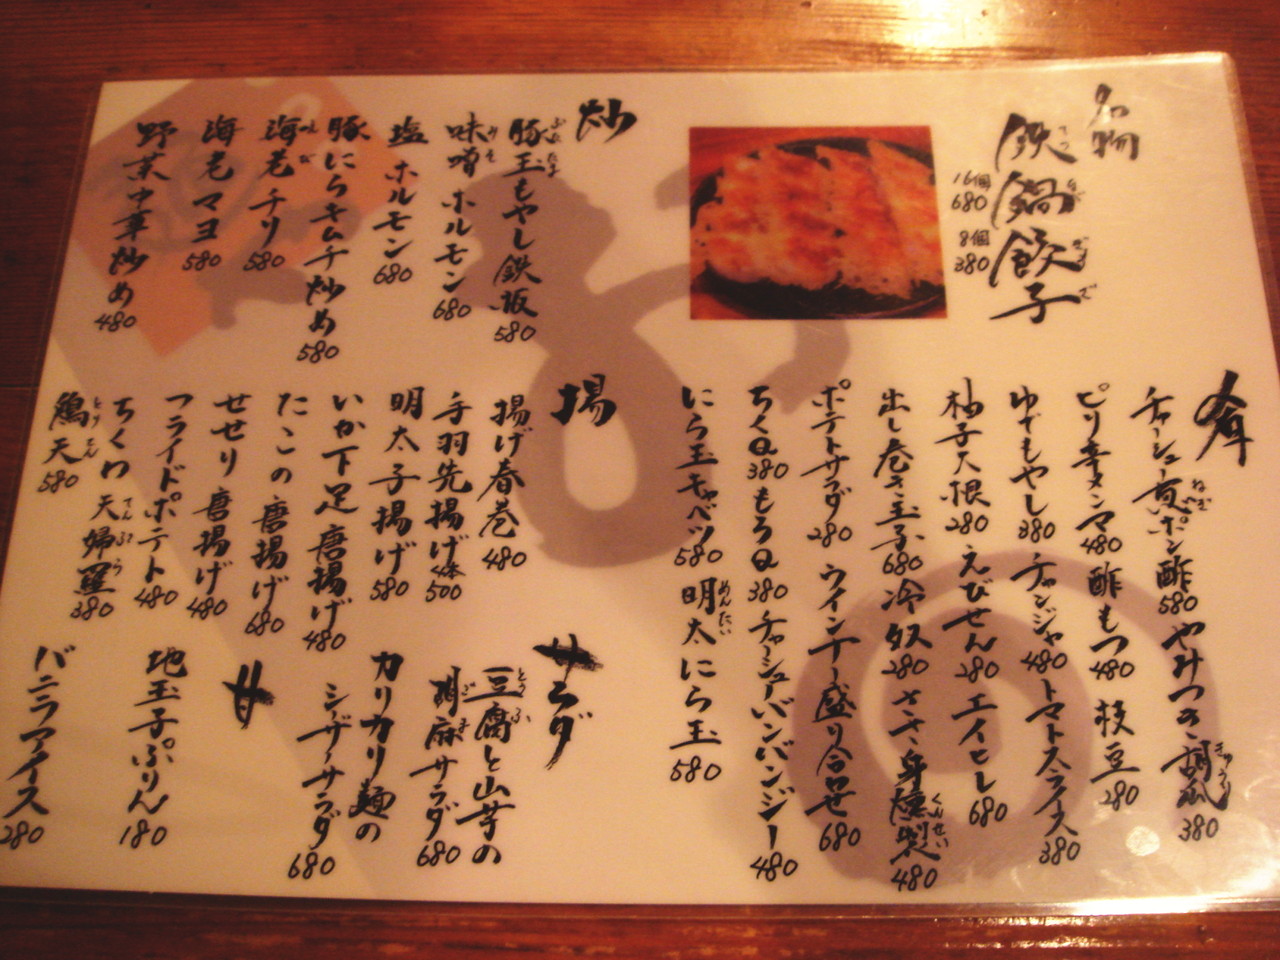 名物
鉄鍋餃子
てつなべぎょうざ
16個
680
8個
380
肴
チャーシュー葱ポン酢 580
ねぎ
やみつき胡瓜 380
きゅうり
ピリ辛メンマ 480
酢もつ 480
枝豆 280
ゆでもやし 380
チャンジャ 480
トマトスライス 380
柚子大根 280
えびせん 280
エイヒレ 680
出し巻き玉子 680
冷奴 280
ささ身燻製 480
くんせい
ポテトサラダ 280
ウインナー盛り合せ 680
ちくQ 380
もろQ 380
チャーシューバンバンジー 480
にら玉キャベツ 580
明太にら玉 580
めんたい
炒
豚玉もやし鉄板 580
ぶたたま
味噌ホルモン 680
みそ
塩ホルモン 680
豚にらキムチ炒め 580
海老チリ 580
えび
海老マヨ 580
野菜中華炒め 480
揚
揚げ春巻 480
手羽先揚げ 4本 500
明太子揚げ 580
いか下足唐揚げ 480
たこの唐揚げ 680
せせり唐揚げ 480
フライドポテト 480
ちくわ天婦羅 380
てんぷら
鶏天 580
とりてん
サラダ
豆腐と山芋の
とうふ
胡麻サラダ 680
ごま
カリカリ麺の
シーザーサラダ 680
甘
地玉子ぷりん 180
バニラアイス 280